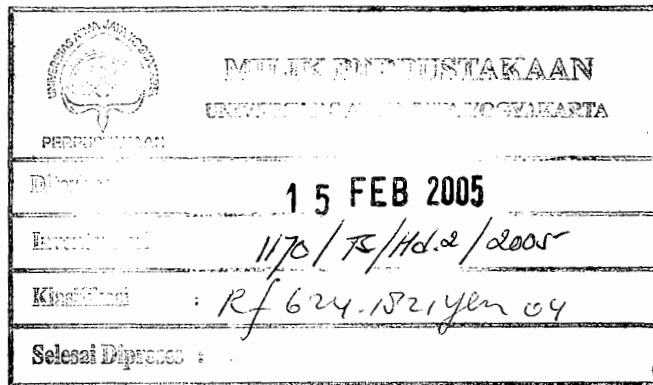 UNIVERSITAS ATMA JAYA YOGYAKARTA
PERPUSTAKAAN
MILIK PERPUSTAKAAN
UNIVERSITAS ATMA JAYA YOGYAKARTA
Diterima
15 FEB 2005
Inventarisasi
1170/TS/Hd.2/2005
Klasifikasi : Rf 624.1521 Yen 04
Selesai Diproses :